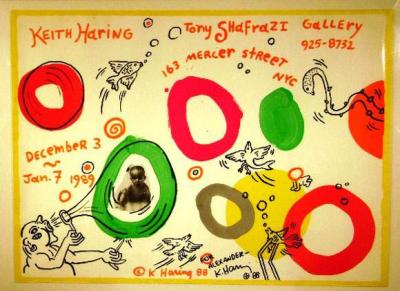 KEITH HARING
TONY SHAFRAZI GALLERY
925-8732
163 MERCER STREET
NYC
DECEMBER 3
~
JAN. 7 1989
© K HARING 88
FOR ALEXANDER
K. Haring
88